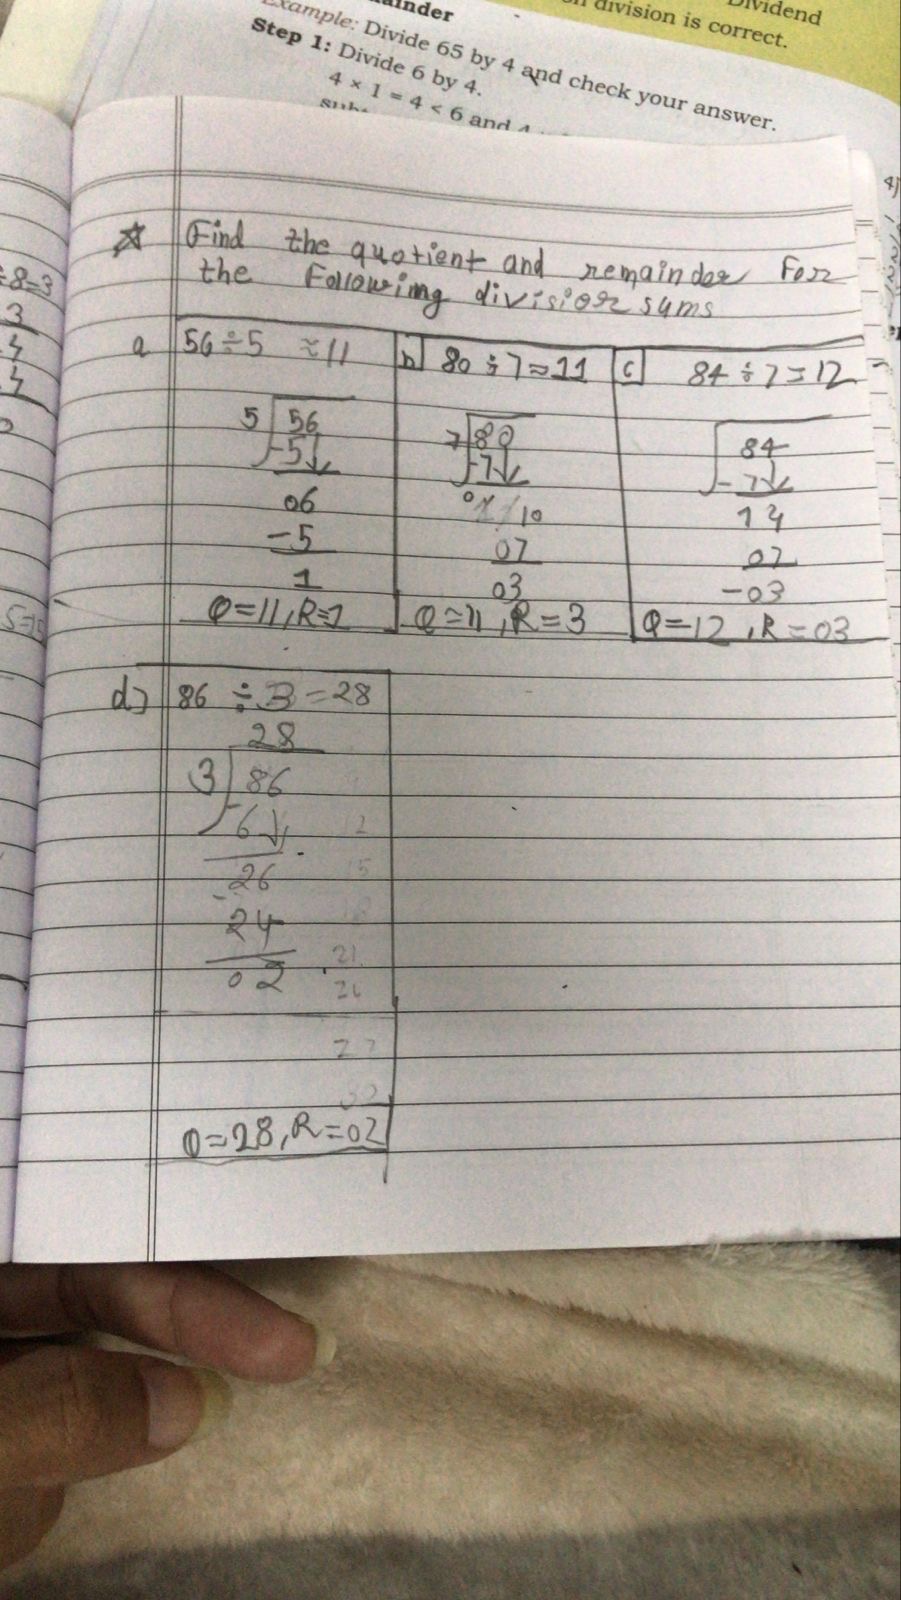 ainder
Dividend
division is correct.
Example: Divide 65 by 4 and check your answer.
Step 1: Divide 6 by 4.
4 × 1 = 4 < 6 and 4
☆ Find the quotient and remainder For
the Following division sums
a 56÷5 ≈11
5 56
-5↓
06
-5
1
Q=11,R=1
b] 80 ÷7=11
7 80
-7↓
10
07
03
Q=11,R=3
c] 84÷7=12
84
-7↓
14
07
-03
Q=12,R=03
d) 86 ÷ 3=28
28
3 86
-6↓
26
-
24
02
Q=28,R=02
÷8=3
3
21
27